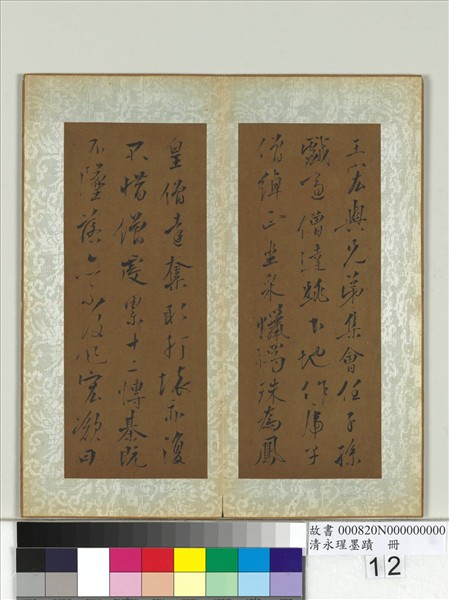 王宏與兄弟集會任子孫
戲適僧達跳下地作虎子
僧綽正坐采蠟燭珠為鳳
皇僧達奪取打壞亦復
不惜僧虔累十二博棊既
不墜落亦不復
故書 000820N000000000
清永瑆墨蹟 冊
12